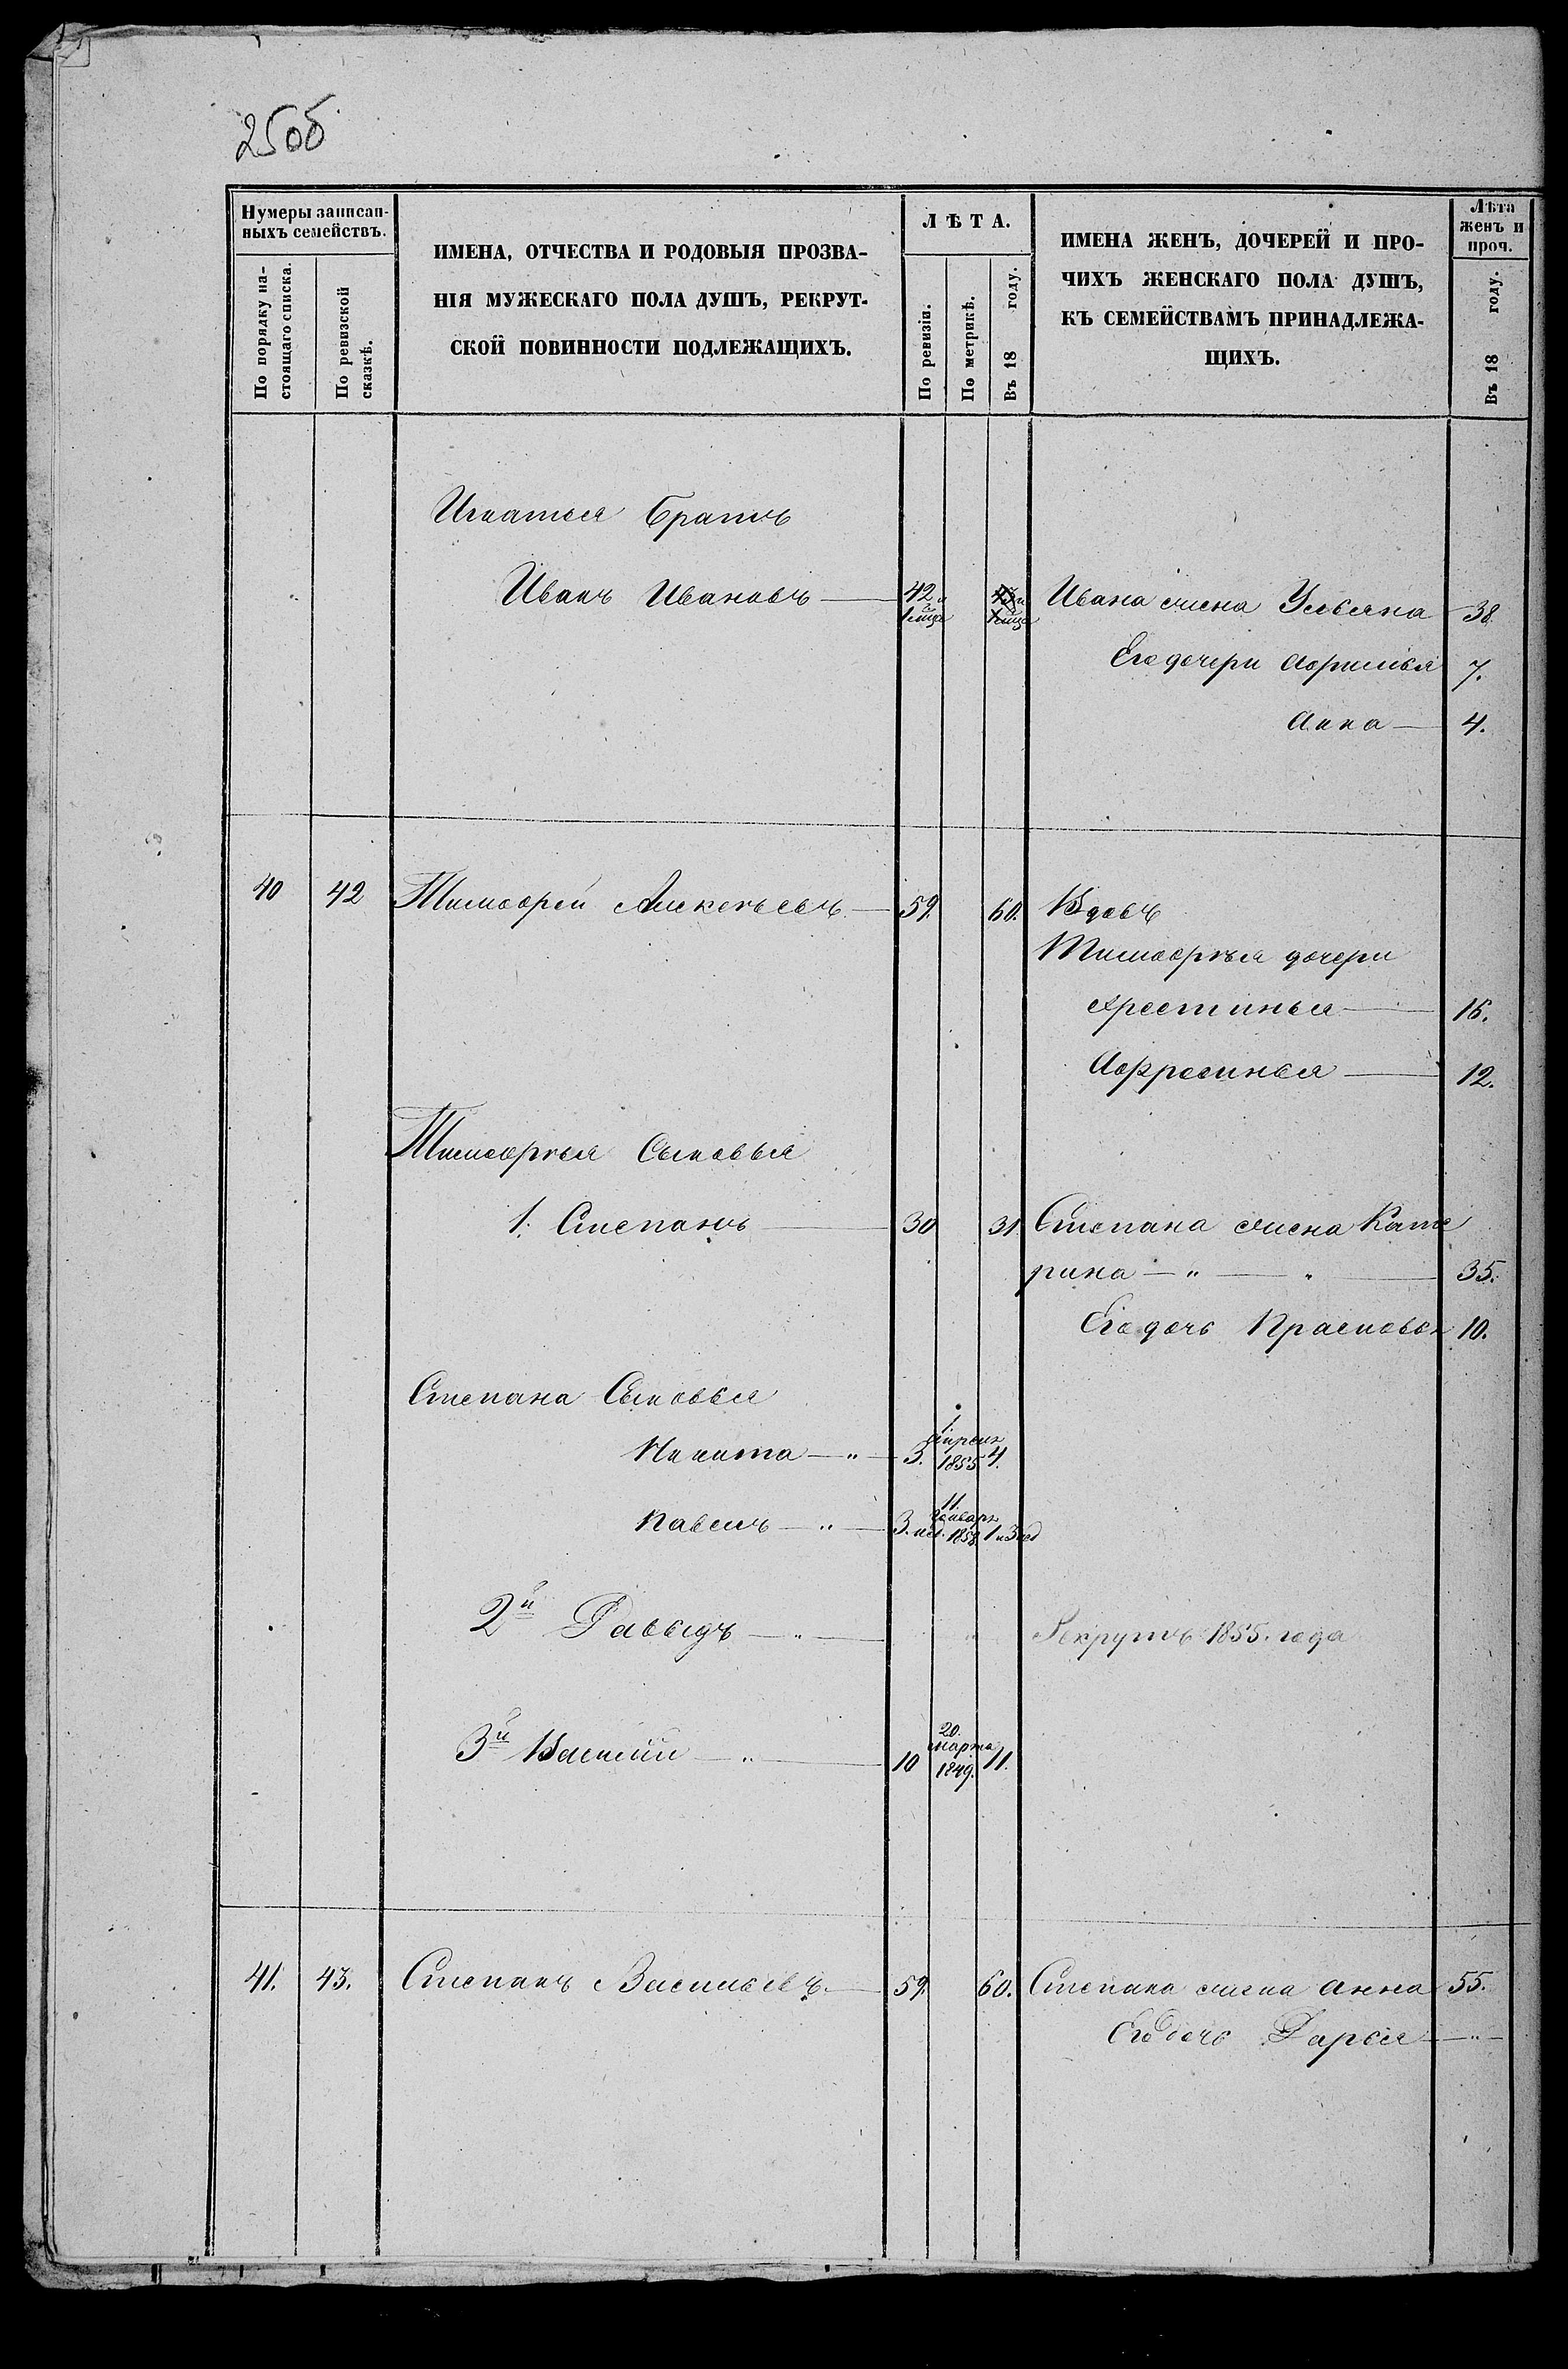 25об
Нумеры записан-
ныхъ семействъ.
По порядку на-
стоящаго списка.
По ревизской
сказкѣ.
ИМЕНА, ОТЧЕСТВА И РОДОВЫЯ ПРОЗВА-
НІЯ МУЖЕСКАГО ПОЛА ДУШЪ, РЕКРУТ-
СКОЙ ПОВИННОСТИ ПОДЛЕЖАЩИХЪ.
ЛѢТА.
По ревизіи.
По метрикѣ.
Въ 18 году.
ИМЕНА ЖЕНЪ, ДОЧЕРЕЙ И ПРО-
ЧИХЪ ЖЕНСКАГО ПОЛА ДУШЪ,
КЪ СЕМЕЙСТВАМЪ ПРИНАДЛЕЖА-
ЩИХЪ.
Лѣта
женъ и
проч.
Въ 18 году.
Игнатья братъ
Иванъ Ивановъ 42 Ивана жена Ульяна 38
Его дочери 7.
Анна 4.
40 42 Тимофей Алексѣевъ 59. 60. Вдовъ
Тимофѣя дочери
Хрестинья 16.
Афросинья 12.
Тимофѣя Сыновья
1. Степанъ 30 31 Степана жена Кате
рина 35.
Его дочь Прасковья 10.
Степана Сыновья
Никита 3. 1 Апреля 1855 4.
Павелъ 3. нед. 11. Января 1858. 1 и 3 нед
2й Давыдъ Рекрутъ 1855. года
3й Василій 10 20. Марта 1849. 11.
41. 43. Степанъ Васильевъ. 59. 60. Степана жена Анна 55.
Его дочь Дарья